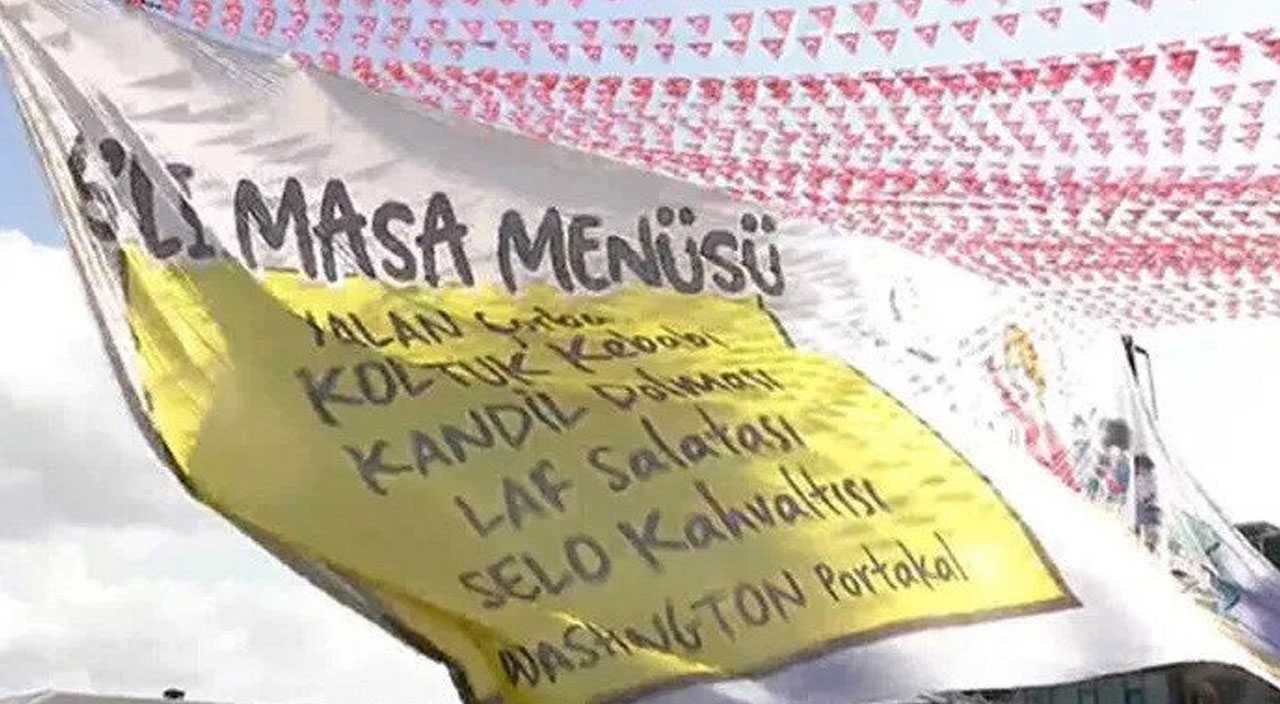 6'LI MASA MENÜSÜ
YALAN Çorba
KOLTUK Kebabı
KANDİL Dolması
LAF Salatası
SELO Kahvaltısı
WASHINGTON Portakal